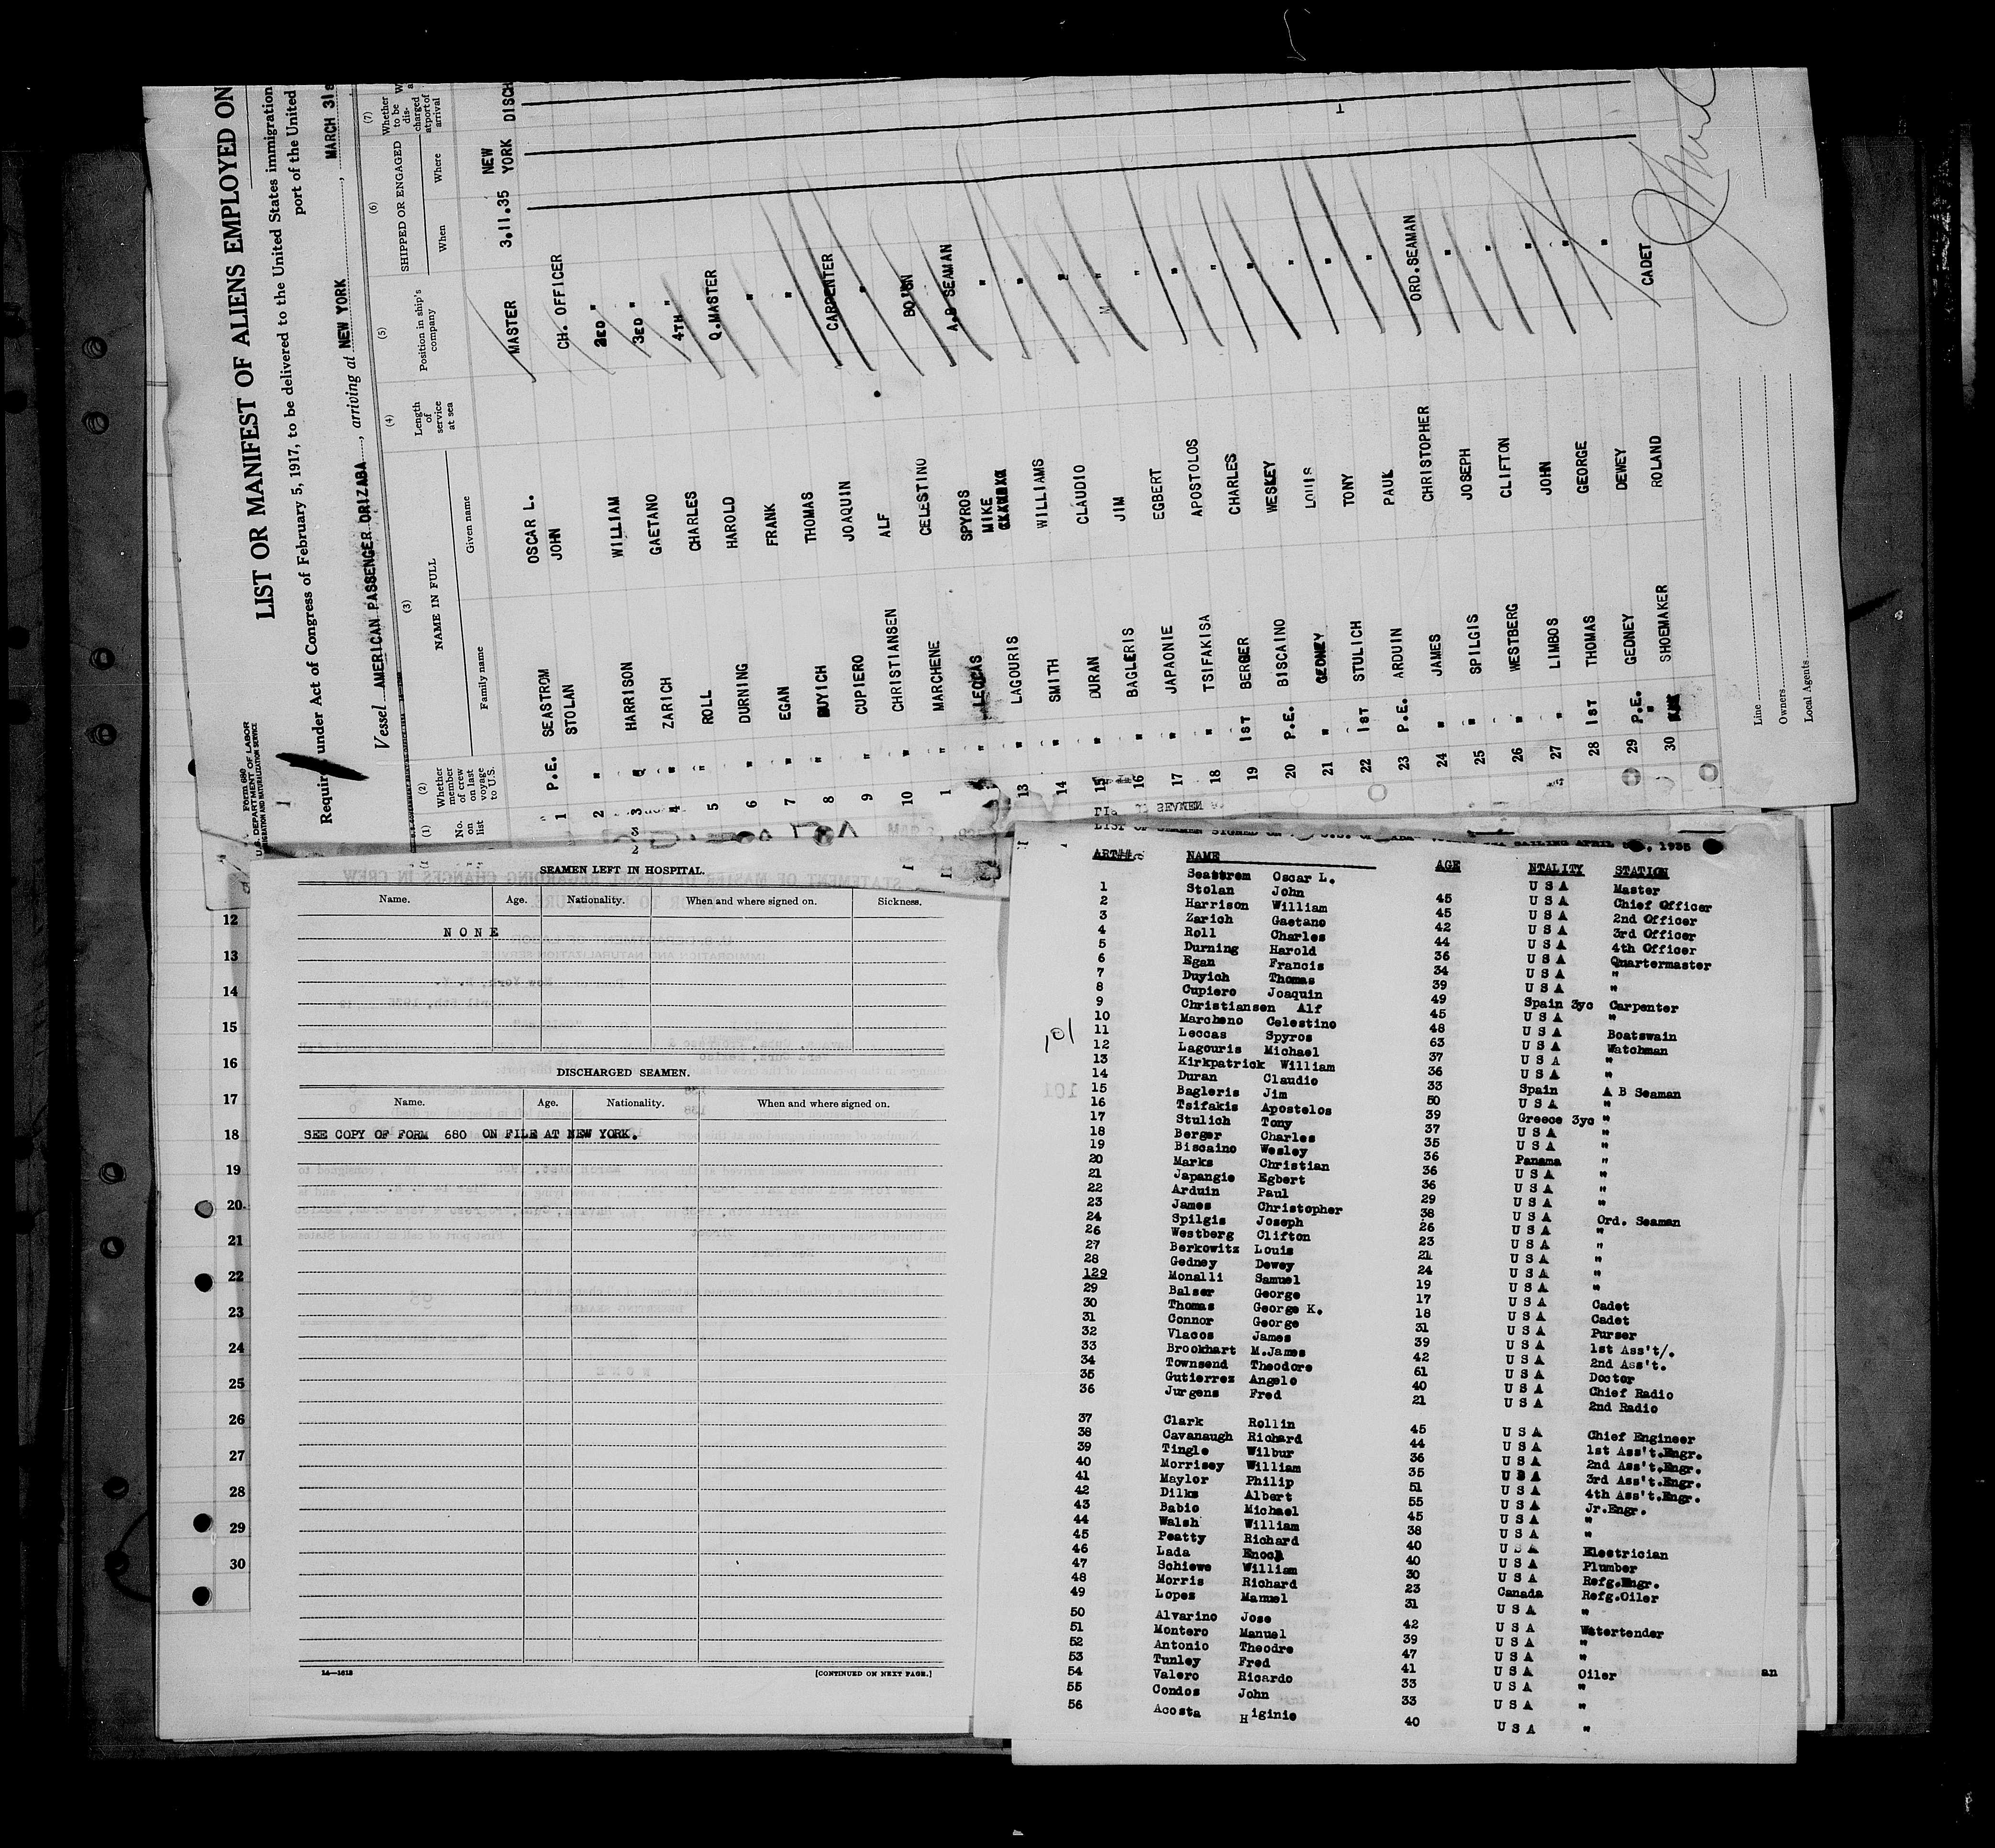 Form 680
U.S. DEPARTMENT OF LABOR
IMMIGRATION AND NATURALIZATION SERVICE
1
LIST OR MANIFEST OF ALIENS EMPLOYED ON
Required under Act of Congress of February 5, 1917, to be delivered to the United States immigration
port of the United
Vessel AMERICAN PASSENGER ORIZABA, arriving at NEW YORK, MARCH 31s
(1) (2) (3) (4) (5) (6) (7)
No. on list
Whether member of crew on last voyage to U.S.
NAME IN FULL
Family name Given name
Length of service at sea
Position in ship's company
SHIPPED OR ENGAGED
When Where
Whether to be discharged at port of arrival
1 P.E. SEASTROM OSCAR L. MASTER 3.11.35 NEW YORK DISCH
STOLAN JOHN CH. OFFICER
2 " 2ED "
3 " HARRISON WILLIAM 3ED "
4 " ZARICH GAETANO 4TH "
5 " ROLL CHARLES Q.MASTER
6 " DURNING HAROLD "
7 " EGAN FRANK "
8 " DUYICH THOMAS CARPENTER
9 " CUPIERO JOAQUIN "
10 " CHRISTIANSEN ALF BO'SN
1 " MARCHENE CELESTINO A.B SEAMAN
" LECCAS SPYROS "
13 " LAGOURIS MIKE "
14 " SMITH WILLIAMS "
15 " DURAN CLAUDIO "
16 " BAGLERIS JIM "
17 " JAPAONIE EGBERT "
18 " TSIFAKISA APOSTOLOS "
19 1ST BERGER CHARLES "
20 P.E. BISCAINO WESKEY "
21 " GEDNEY LOUIS "
22 1ST STULICH TONY "
23 P.E. ARDUIN PAUK ORD.SEAMAN
24 " JAMES CHRISTOPHER "
25 " SPILGIS JOSEPH "
26 " WESTBERG CLIFTON "
27 " LIMBOS JOHN "
28 1ST THOMAS GEORGE "
29 P.E. GEDNEY DEWEY
30 " SHOEMAKER ROLAND CADET
Line
Owners
Local Agents
SEAMEN LEFT IN HOSPITAL.
Name. Age. Nationality. When and where signed on. Sickness.
NONE
DISCHARGED SEAMEN.
Name. Age. Nationality. When and where signed on.
SEE COPY OF FORM 680 ON FILE AT NEW YORK.
14—1613
[CONTINUED ON NEXT PAGE.]
12
13
14
15
16
17
18
19
20
21
22
23
24
25
26
27
28
29
30
101
LIST OF SEAMEN SIGNED ON SAILING APRIL 1935
ART## NAME AGE NTALITY STATION
Seastrem Oscar L. U S A Master
1 Stolan John 45 U S A Chief Officer
2 Harrison William 45 U S A 2nd Officer
3 Zarich Gaetano 42 U S A 3rd Officer
4 Roll Charles 44 U S A 4th Officer
5 Durning Harold 36 U S A Quartermaster
6 Egan Francis 34 U S A "
7 Duyich Thomas 39 U S A "
8 Cupiero Joaquin 49 Spain 3yc Carpenter
9 Christiansen Alf 45 U S A "
10 Marcheno Celestino 48 U S A Boatswain
11 Leccas Spyros 63 U S A Watchman
12 Lagouris Michael 37 U S A "
13 Kirkpatrick William 36 U S A "
14 Duran Claudio 33 Spain A B Seaman
15 Bagleris Jim 50 U S A "
16 Tsifakis Apostolos 39 Greece 3yc "
17 Stulich Tony 37 U S A "
18 Berger Charles 35 U S A "
19 Biscaino Wesley 36 Panama "
20 Marks Christian 36 U S A "
21 Japangie Egbert 36 U S A "
22 Arduin Paul 29 U S A "
23 James Christopher 38 U S A Ord. Seaman
24 Spilgis Joseph 26 U S A "
26 Westberg Clifton 23 U S A "
27 Berkowitz Louis 21 U S A "
28 Gedney Dewey 24 U S A "
129 Monalli Samuel 19 U S A "
29 Balser George 17 U S A Cadet
30 Thomas George K. 18 U S A Cadet
31 Connor George 31 U S A Purser
32 Vlacos James 39 U S A 1st Ass't/.
33 Brookhart M.James 42 U S A 2nd Ass't.
34 Townsend Theodore 61 U S A Doctor
35 Gutierrez Angelo 40 U S A Chief Radio
36 Jurgens Fred 21 U S A 2nd Radio
37 Clark Rollin 45 U S A Chief Engineer
38 Cavanaugh Richard 44 U S A 1st Ass't.Engr.
39 Tingle Wilbur 36 U S A 2nd Ass't.Engr.
40 Morrisey William 35 U S A 3rd Ass't.Engr.
41 Maylor Philip 51 U S A 4th Ass't.Engr.
42 Dilks Albert 55 U S A Jr.Engr.
43 Babio Michael 45 U S A "
44 Walsh William 38 U S A "
45 Peatty Richard 40 U S A Electrician
46 Lada Enoch 40 U S A Plumber
47 Schiewe William 30 U S A Refg.Engr.
48 Morris Richard 23 Canada Refg.Oiler
49 Lopes Manuel 31 U S A "
50 Alvarino Jose 42 U S A Watertender
51 Montero Manuel 39 U S A "
52 Antonio Theodre 47 U S A "
53 Tunley Fred 41 U S A Oiler
54 Valero Ricardo 33 U S A "
55 Condos John 33 U S A "
56 Acosta Higinio 40 U S A "